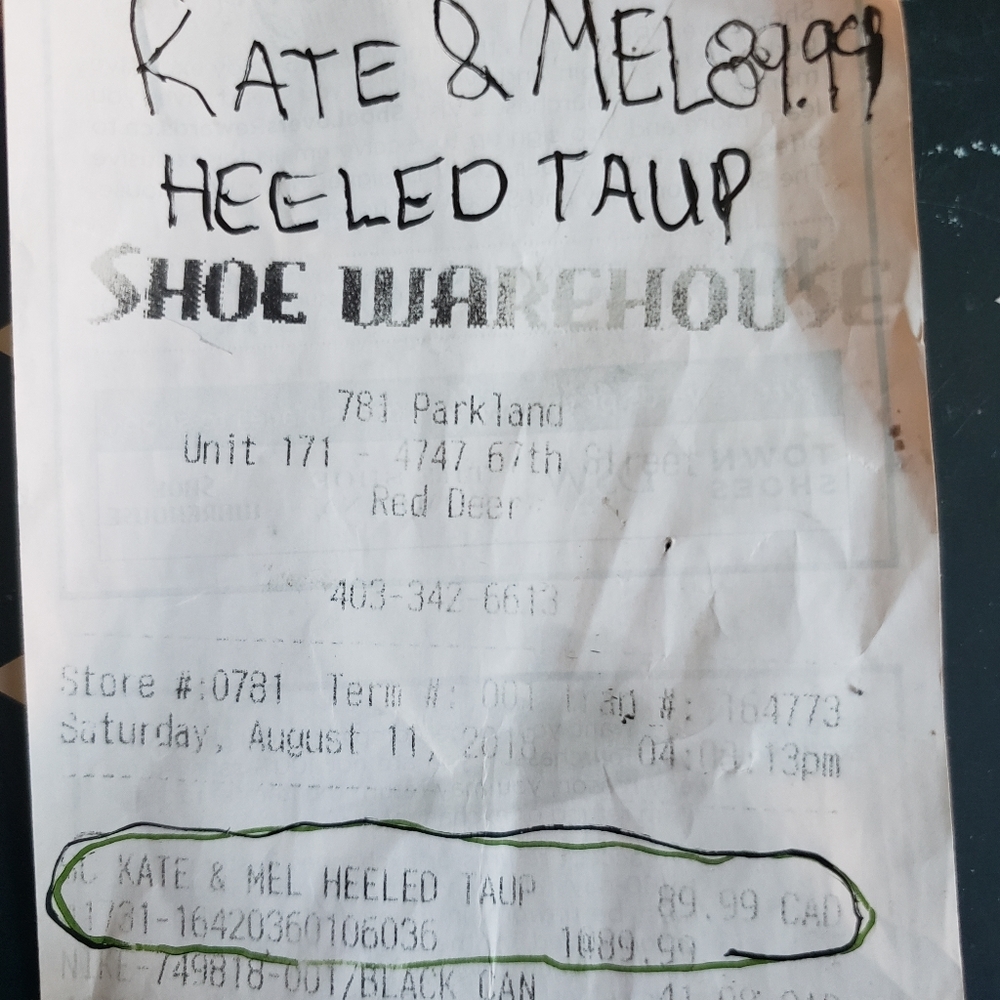 KATE & MEL 89.99
HEELED TAUP
SHOE WAREHOUSE
781 Parkland
Unit 171 - 4747 67th Street
Red Deer
403-342-6613
Store #:0781 Term #: 001 Tran #: 164773
Saturday, August 11, 2018 04: :13pm
KATE & MEL HEELED TAUP 89.99 CAD
1731-16420360106036 1@89.99
NIKE-749818-001/BLACK CAN